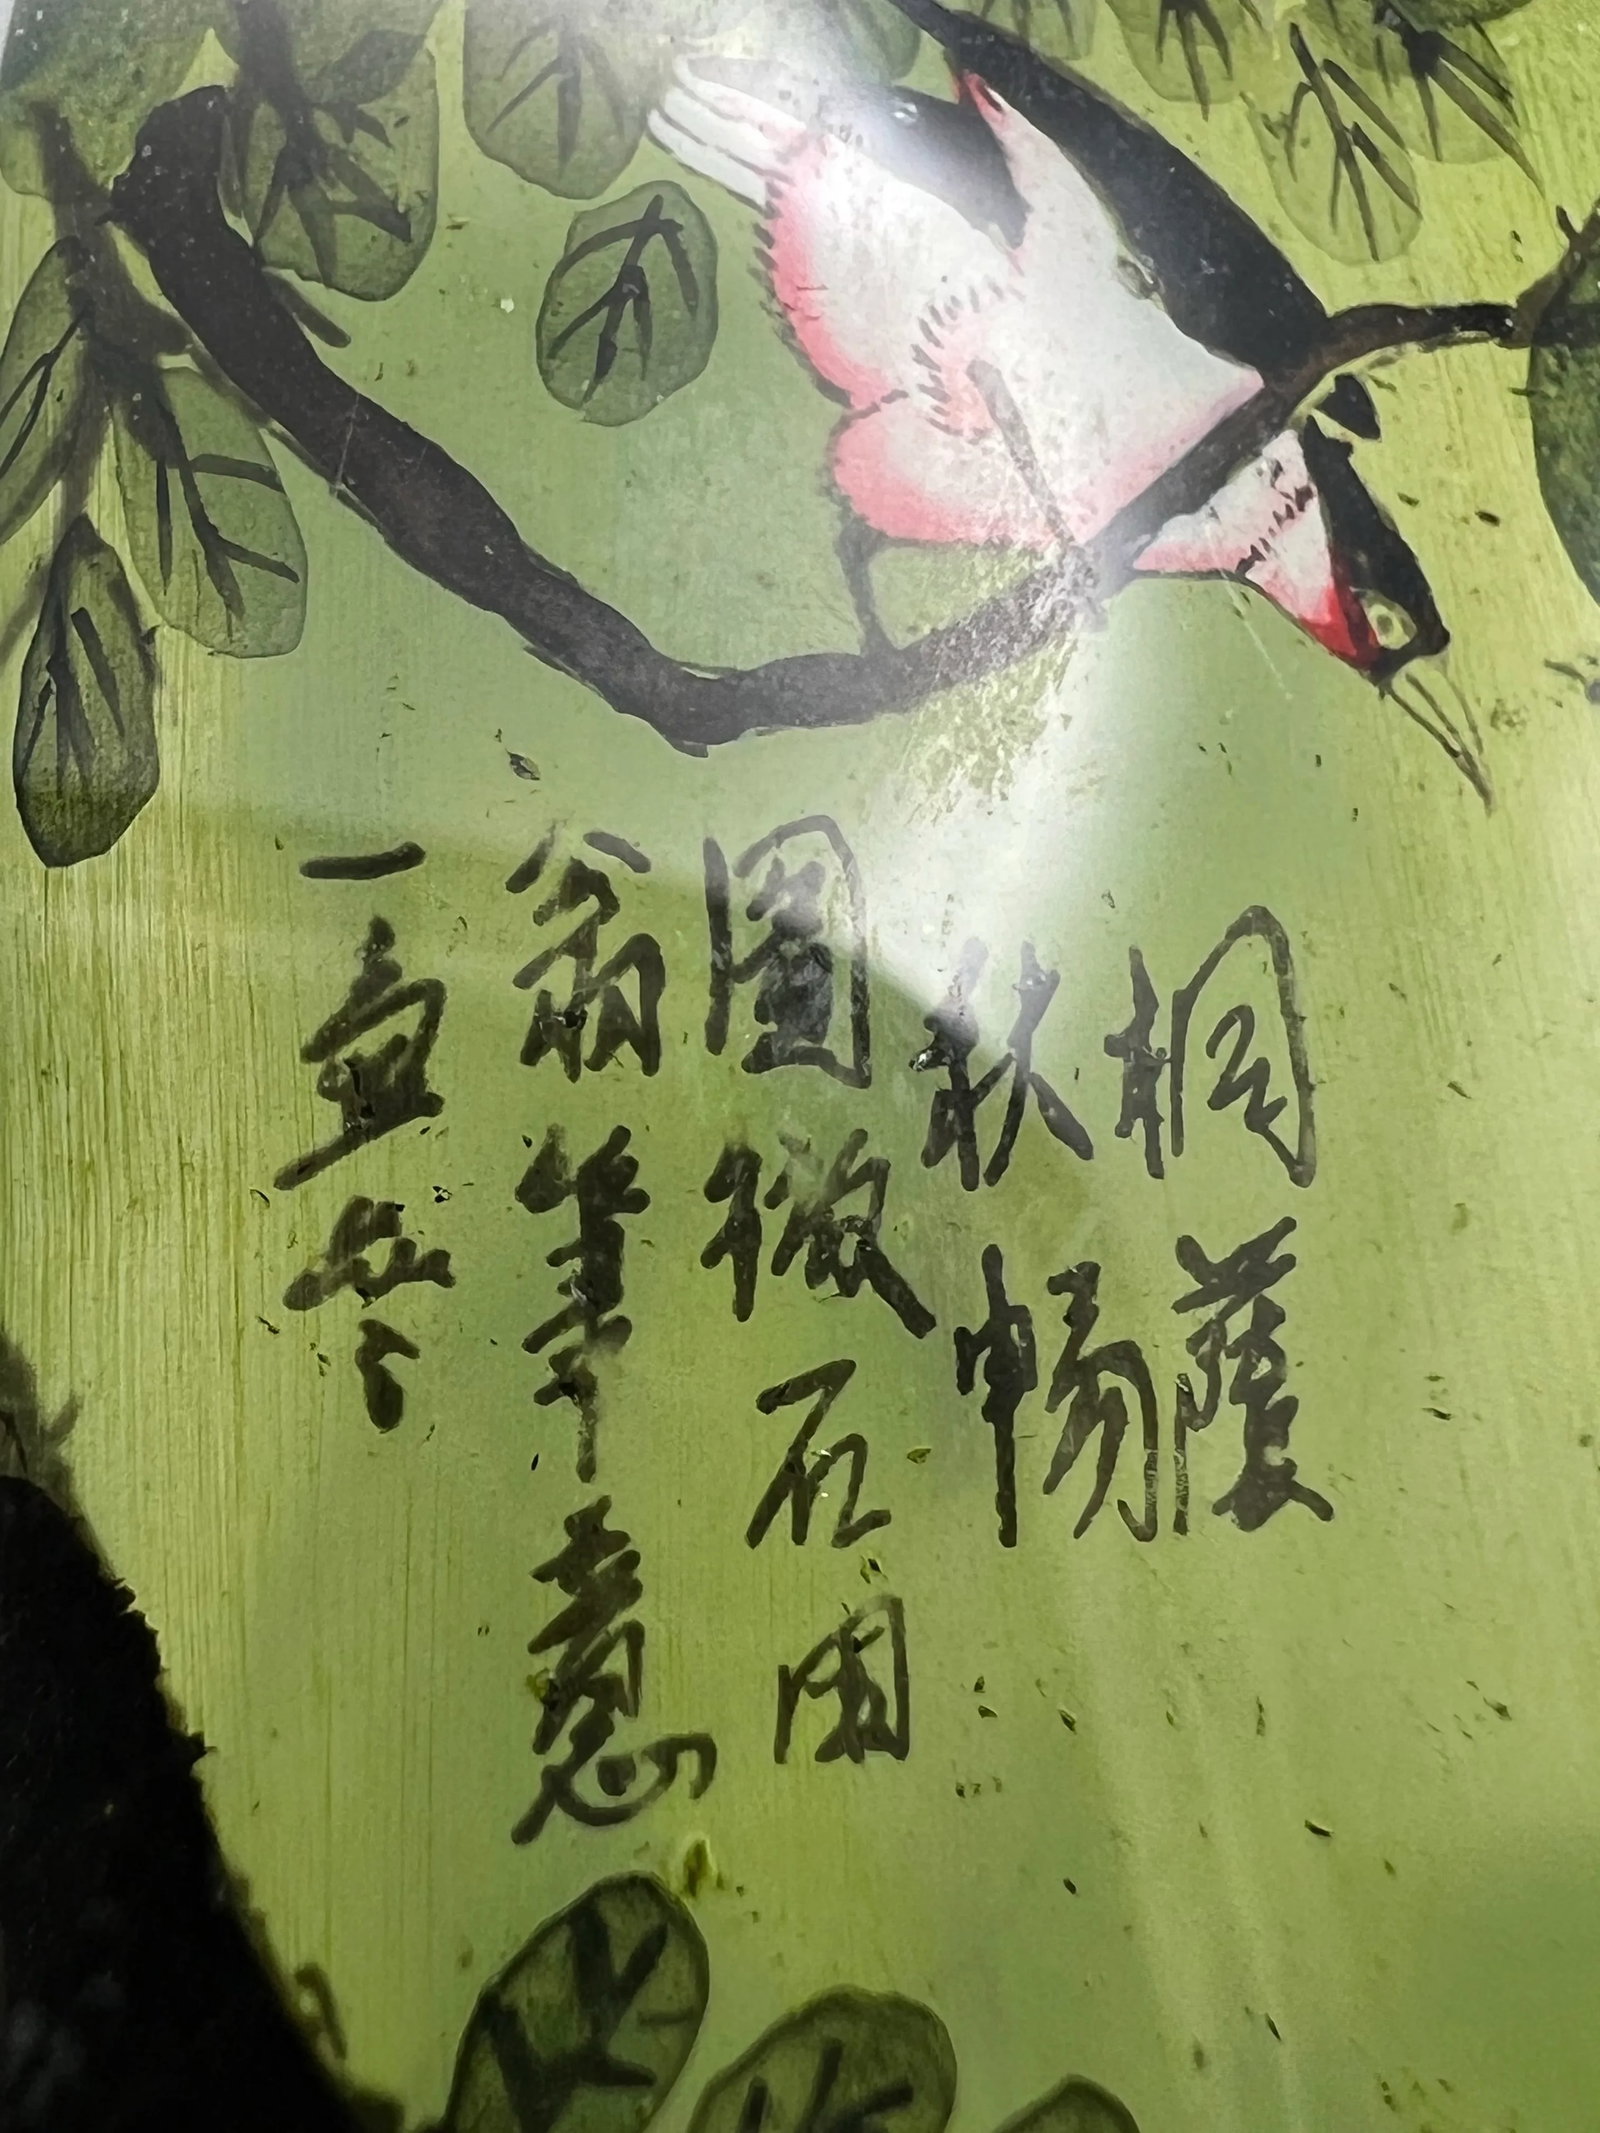 桐蔭
秋暢
圖微石田
翁筆意
一壺